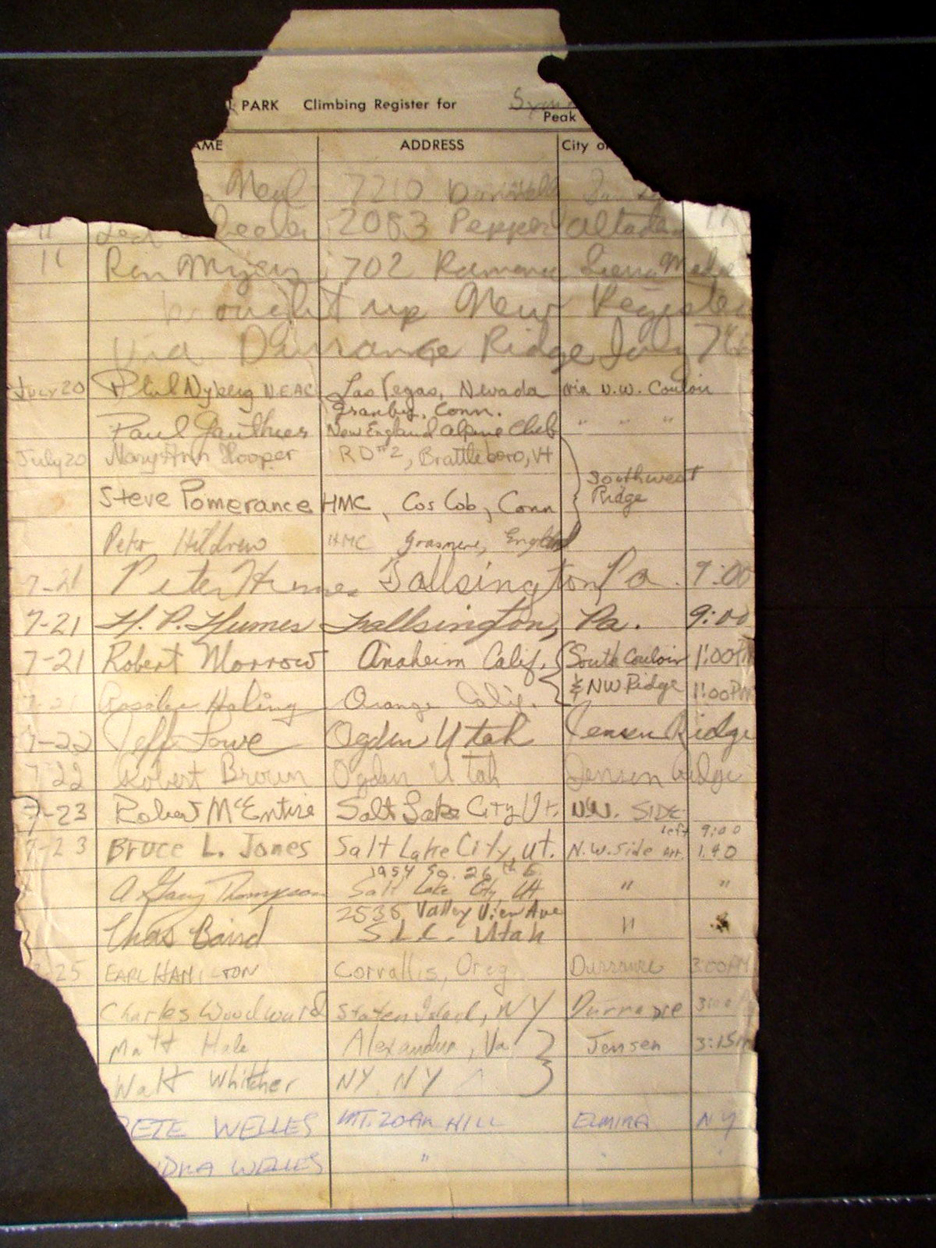 PARK Climbing Register for
Peak
AME ADDRESS City o
7210
2063 Pepper Altade
11 Ron Myers 702 Ramona Sierra Madre
brought up New Register
via Durrance Ridge July 7th
July 20 Phil Nyberg NEAC Las Vegas, Nevada via N.W. Couloir
Granby, Conn.
Paul Gauthier New England alpine club " " "
July 20 Mary Ann Hooper RD #2, Brattleboro, Vt
Southwest
Ridge
Steve Pomerance HMC, Cos Cob, Conn
Peter Hildrew HMC Grasmere, England
7-21 Peter Humes Fallsington Pa. 9:00
7-21 H. P. Humes Fallsington, Pa. 9:00
7-21 Robert Morrow Anaheim Calif. South Couloir 1:00PM
& NW Ridge
7-21 Rosalie Haling Orange Calif. 1:00PM
7-22 Jeff Lowe Ogden Utah Jensen Ridge
7-22 Robert Brown Ogden Utah Jensen Ridge
7-23 Robert McEntire Salt Lake City Ut. N.W. SIDE
left 9:00
7-23 Bruce L. Jones Salt Lake City, Ut. N.W. Side arr. 1:40
1954 So. 26th E.
A Gary Thompson Salt Lake City Ut " "
2535 Valley View Ave
Chas Baird S.L.C. Utah "
25 EARL HAMILTON Corvallis, Oreg. Durrance 3:00PM
Charles Woodward Staten Island, NY 3:00
Matt Hale Alexandria, Va Jensen 3:15
Walt Whitcher NY, NY
ETE WELLES MT. ZOAR HILL ELMIRA NY
NDRA WELLES "